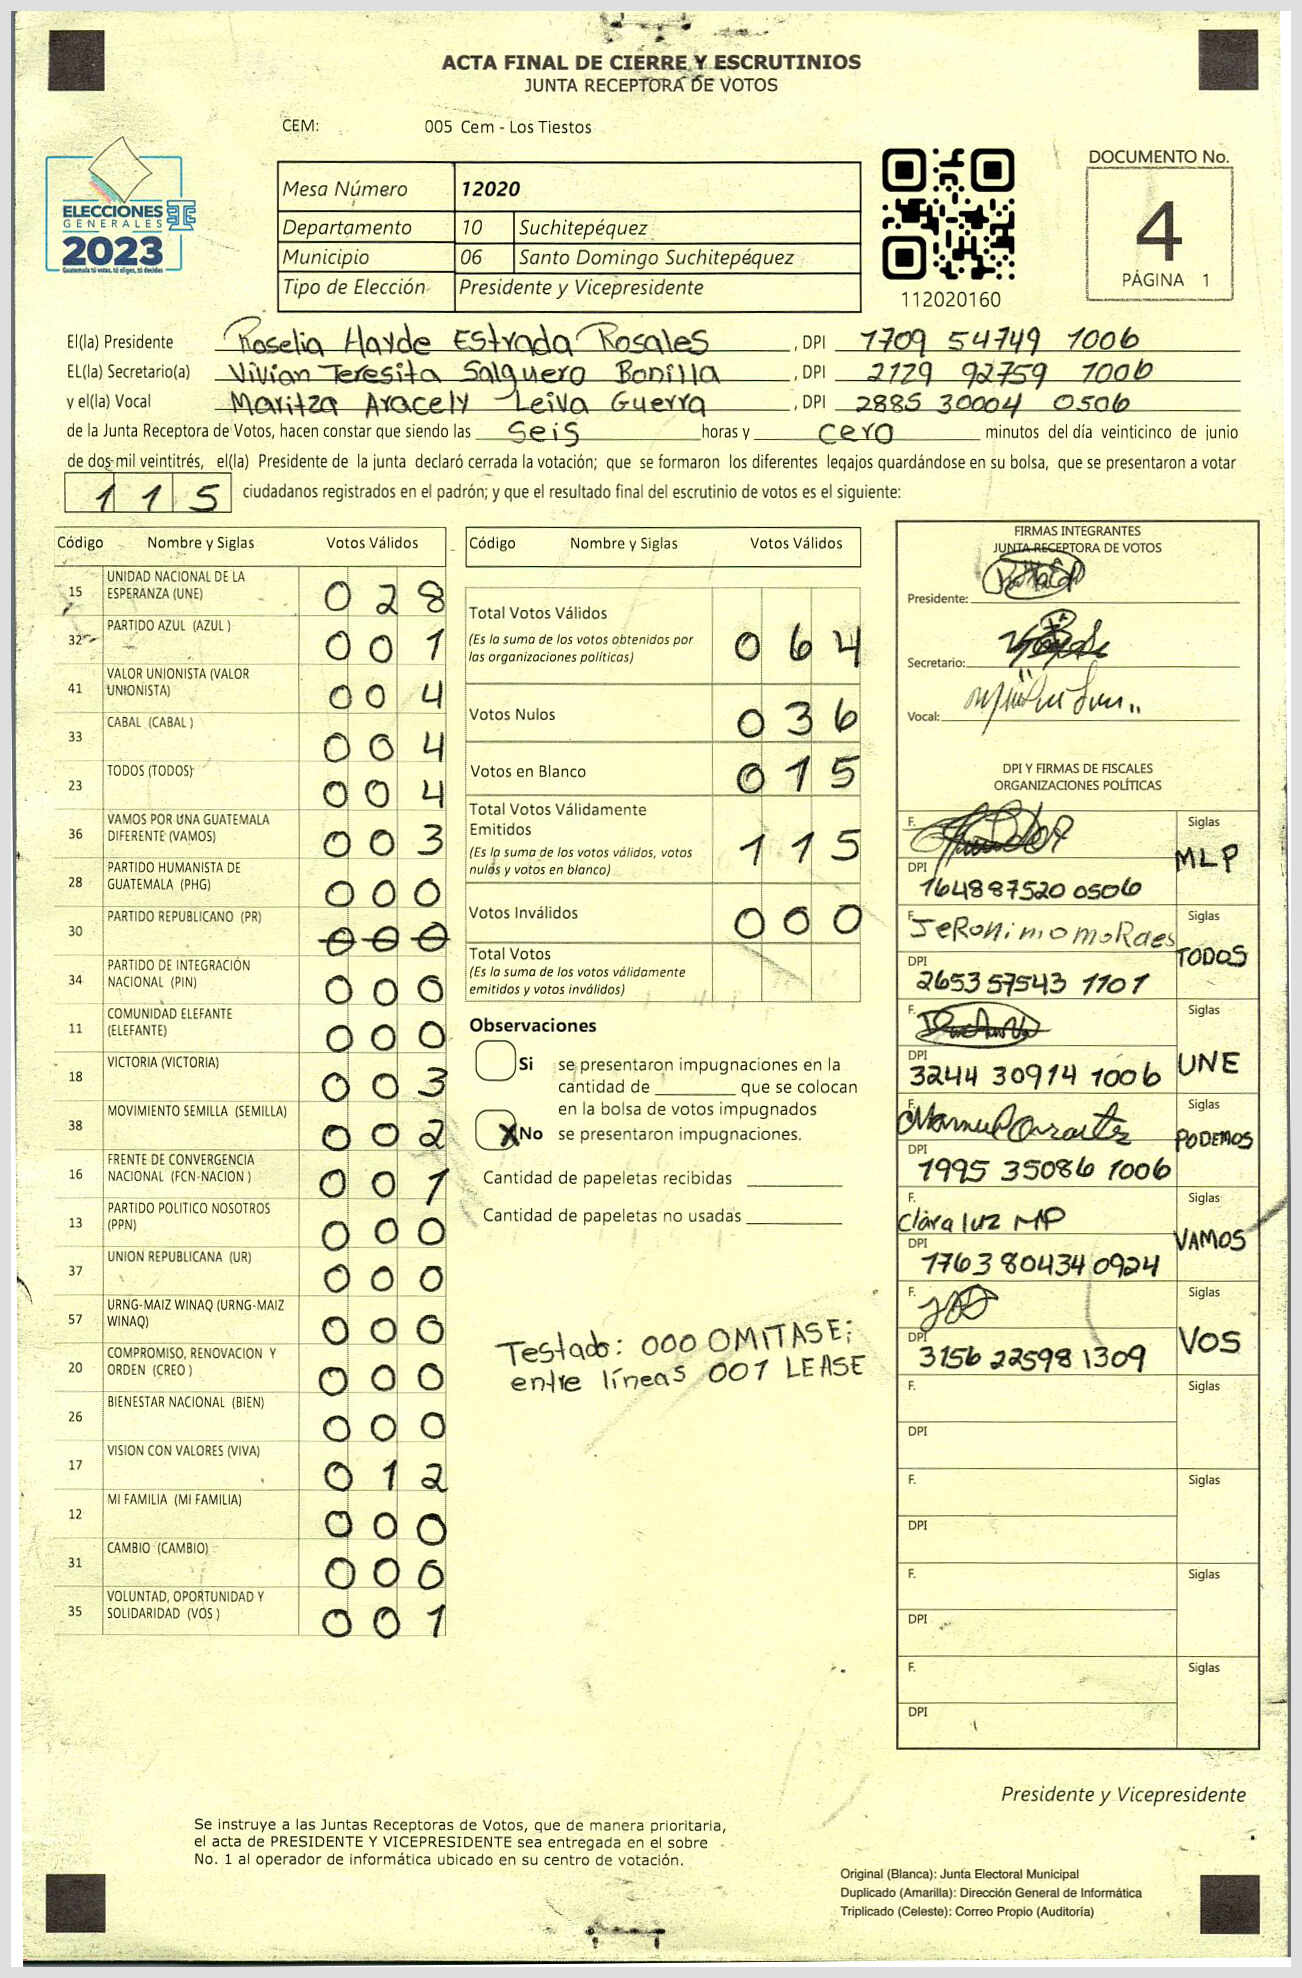 ACTA FINAL DE CIERRE Y ESCRUTINIOS
JUNTA RECEPTORA DE VOTOS
CEM: 005 Cem - Los Tiestos
ELECCIONES
GENERALES
2023
Guatemala tú votas, tú eliges, tú decides
Mesa Número 12020
Departamento 10 Suchitepéquez
Municipio 06 Santo Domingo Suchitepéquez
Tipo de Elección Presidente y Vicepresidente
112020160
DOCUMENTO No.
4
PÁGINA 1
El(la) Presidente Roselia Hayde Estrada Rosales , DPI 1709 54749 1006
EL(la) Secretario(a) Vivian Teresita Salguero Bonilla , DPI 2129 92759 1006
y el(la) Vocal Maritza Aracely Leiva Guerra , DPI 2885 30004 0506
de la Junta Receptora de Votos, hacen constar que siendo las seis horas y cero minutos del día veinticinco de junio
de dos mil veintitrés, el(la) Presidente de la junta declaró cerrada la votación; que se formaron los diferentes legajos quardándose en su bolsa, que se presentaron a votar
115 ciudadanos registrados en el padrón; y que el resultado final del escrutinio de votos es el siguiente:
Código Nombre y Siglas Votos Válidos
15 UNIDAD NACIONAL DE LA
ESPERANZA (UNE) 028
32 PARTIDO AZUL (AZUL ) 001
41 VALOR UNIONISTA (VALOR
UNIONISTA) 004
33 CABAL (CABAL ) 004
23 TODOS (TODOS) 004
36 VAMOS POR UNA GUATEMALA
DIFERENTE (VAMOS) 003
28 PARTIDO HUMANISTA DE
GUATEMALA (PHG) 000
30 PARTIDO REPUBLICANO (PR) 000
34 PARTIDO DE INTEGRACIÓN
NACIONAL (PIN) 000
11 COMUNIDAD ELEFANTE
(ELEFANTE) 000
18 VICTORIA (VICTORIA) 003
38 MOVIMIENTO SEMILLA (SEMILLA) 002
16 FRENTE DE CONVERGENCIA
NACIONAL (FCN-NACION ) 001
13 PARTIDO POLITICO NOSOTROS
(PPN) 000
37 UNION REPUBLICANA (UR) 000
57 URNG-MAIZ WINAQ (URNG-MAIZ
WINAQ) 000
20 COMPROMISO, RENOVACION Y
ORDEN (CREO ) 000
26 BIENESTAR NACIONAL (BIEN) 000
17 VISION CON VALORES (VIVA) 012
12 MI FAMILIA (MI FAMILIA) 000
31 CAMBIO (CAMBIO) 000
35 VOLUNTAD, OPORTUNIDAD Y
SOLIDARIDAD (VOS ) 001
Código Nombre y Siglas Votos Válidos
Total Votos Válidos 064
(Es la suma de los votos obtenidos por
las organizaciones políticas)
Votos Nulos 036
Votos en Blanco 015
Total Votos Válidamente
Emitidos 115
(Es la suma de los votos válidos, votos
nulos y votos en blanco)
Votos Inválidos 000
Total Votos
(Es la suma de los votos válidamente
emitidos y votos inválidos)
Observaciones
Si se presentaron impugnaciones en la
cantidad de ________ que se colocan
en la bolsa de votos impugnados
X No se presentaron impugnaciones.
Cantidad de papeletas recibidas
Cantidad de papeletas no usadas
Testado: 000 OMITASE;
entre líneas 001 LEASE
FIRMAS INTEGRANTES
JUNTA RECEPTORA DE VOTOS
Presidente:
Secretario:
Vocal:
DPI Y FIRMAS DE FISCALES
ORGANIZACIONES POLÍTICAS
F. Siglas
MLP
DPI
164887520 0506
F. Jeronimo moRaes Siglas
TODOS
DPI
2653 57543 1101
F. Siglas
UNE
DPI
3244 30914 1006
F. Siglas
PODEMOS
DPI
1995 35086 1006
F. Siglas
Clara luz MP
VAMOS
DPI
1763 80434 0924
F. Siglas
VOS
DPI
3156 22598 1309
F. Siglas
DPI
F. Siglas
DPI
F. Siglas
DPI
F. Siglas
DPI
Presidente y Vicepresidente
Se instruye a las Juntas Receptoras de Votos, que de manera prioritaria,
el acta de PRESIDENTE Y VICEPRESIDENTE sea entregada en el sobre
No. 1 al operador de informática ubicado en su centro de votación.
Original (Blanca): Junta Electoral Municipal
Duplicado (Amarilla): Dirección General de Informática
Triplicado (Celeste): Correo Propio (Auditoría)